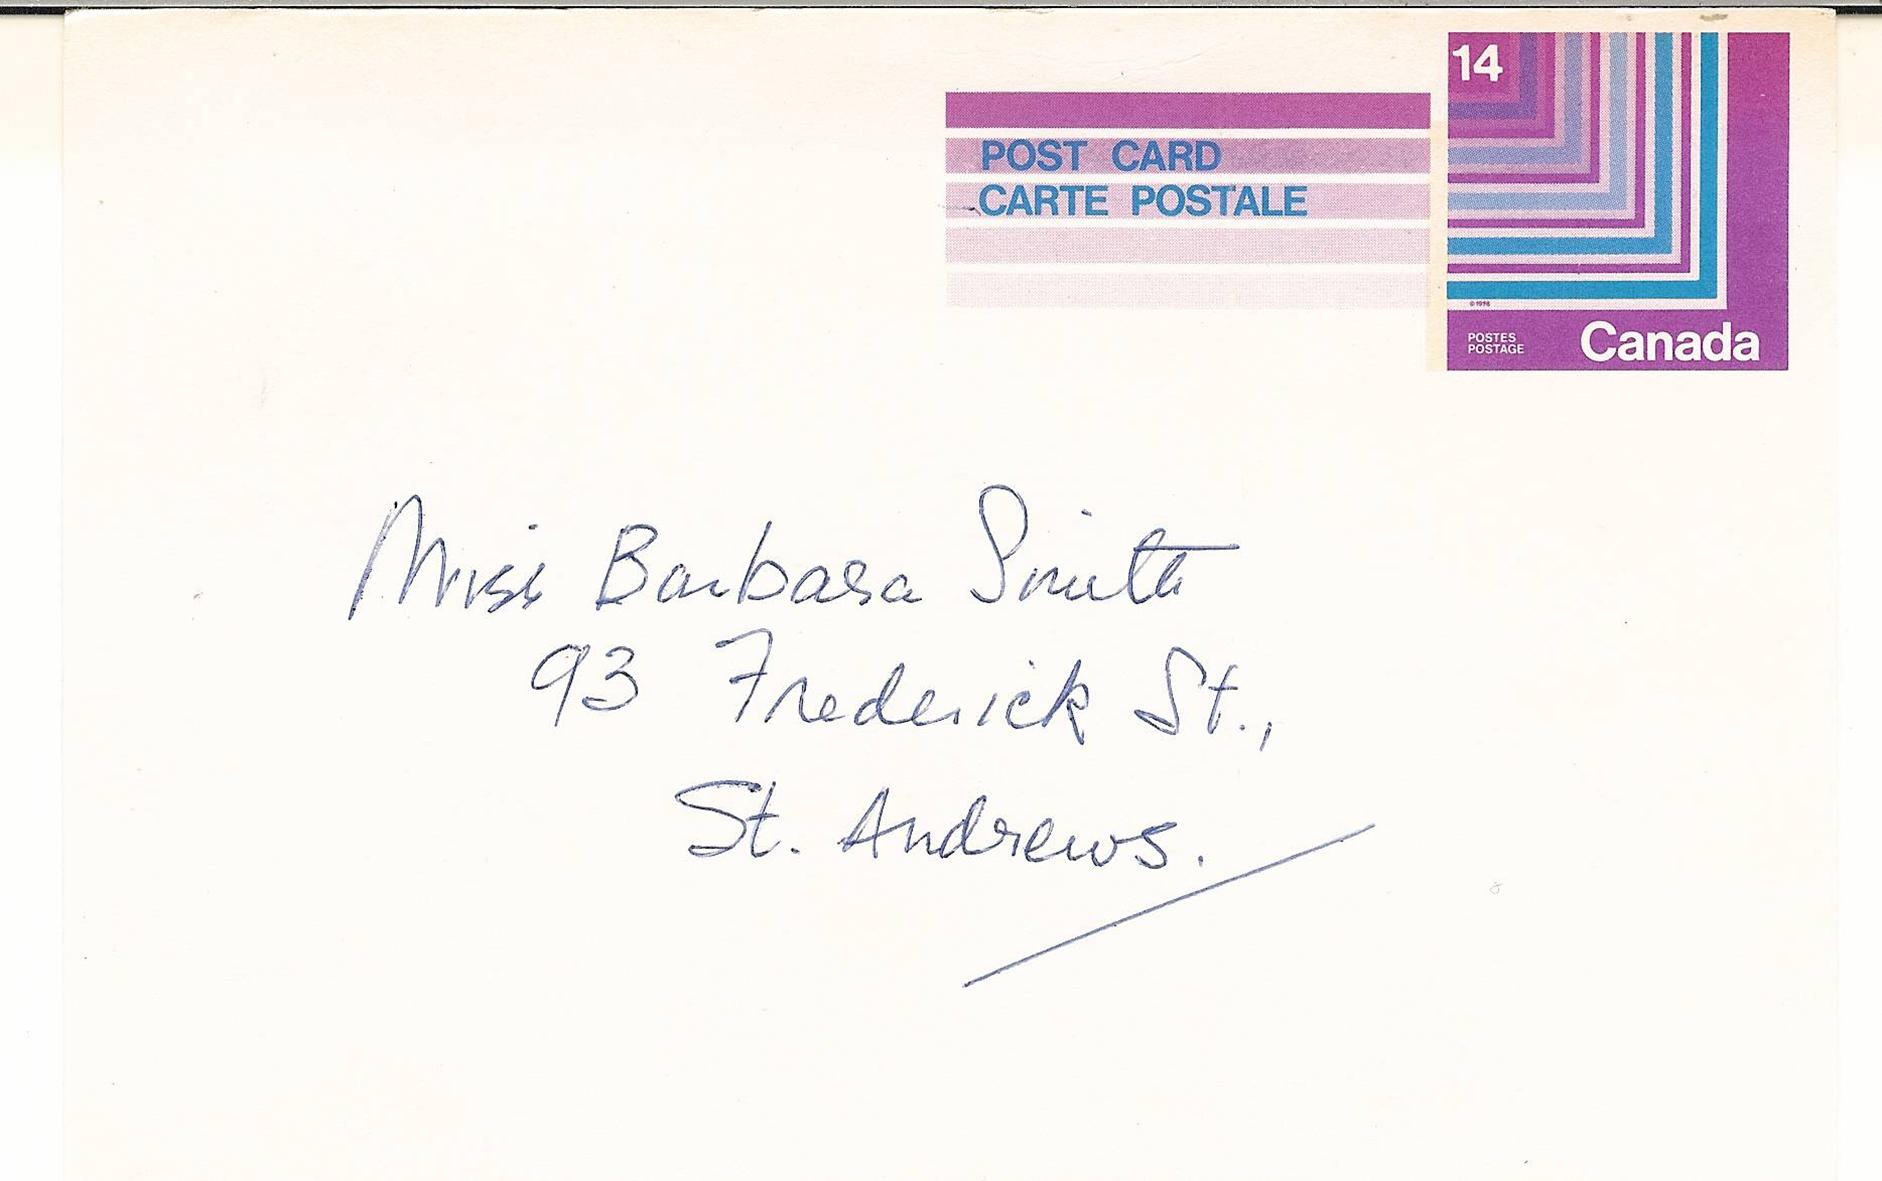 14
POST CARD
CARTE POSTALE
© 1978
POSTES
POSTAGE
Canada
Miss Barbara Smith
93 Frederick St.,
St. Andrews.